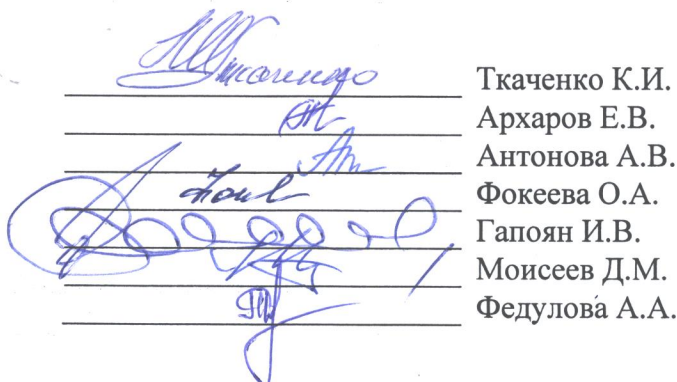 Ткаченко К.И.
Архаров Е.В.
Антонова А.В.
Фокеева О.А.
Гапоян И.В.
Моисеев Д.М.
Федулова А.А.